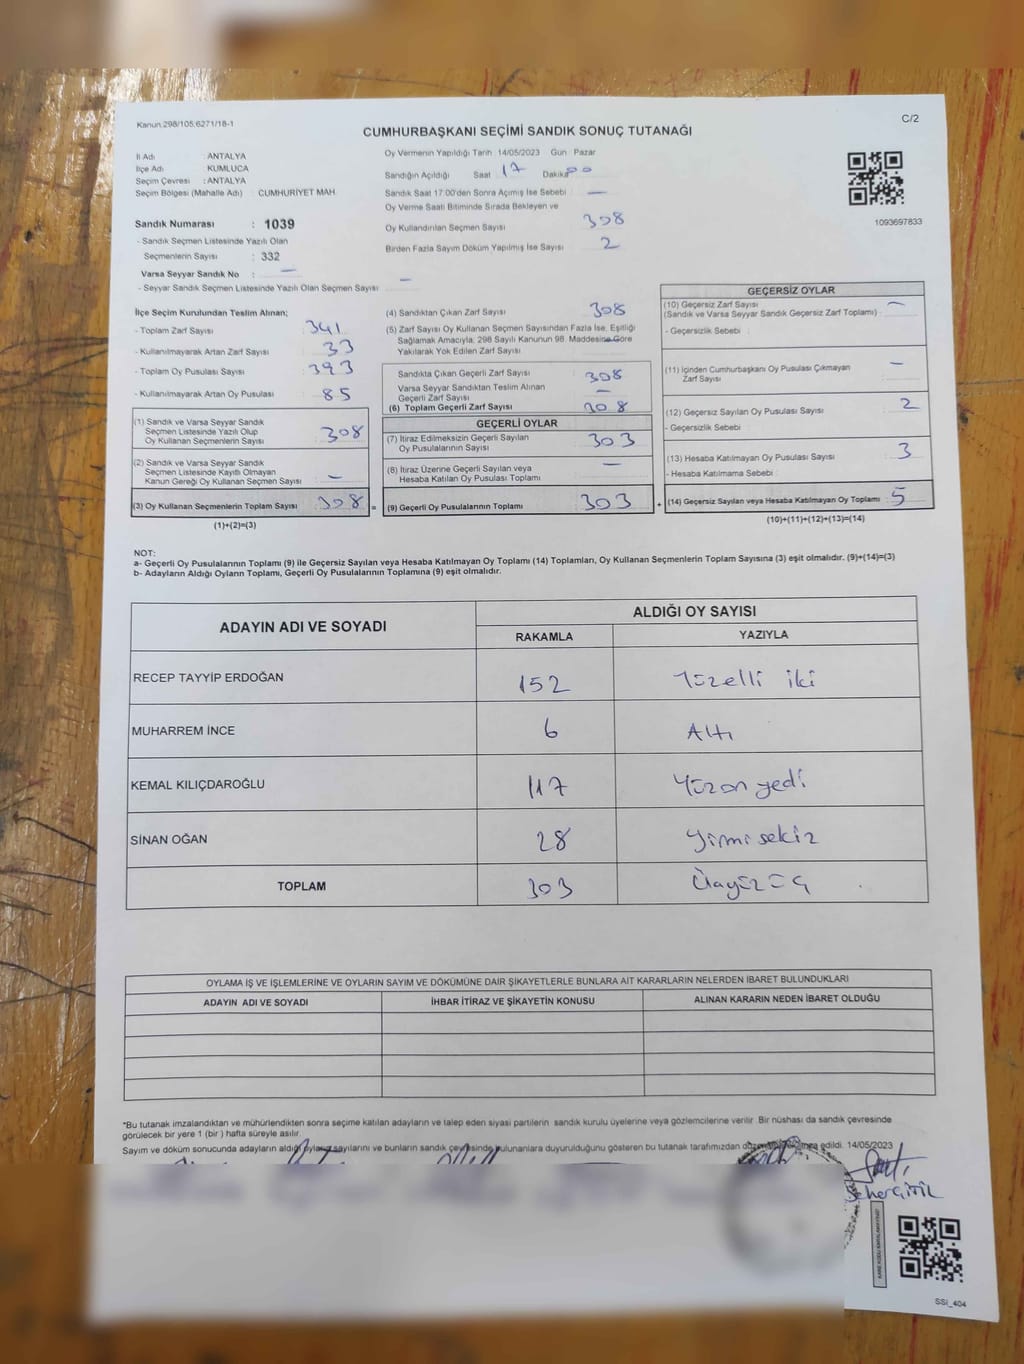 Kanun.298/105;6271/18-1
C/2
CUMHURBAŞKANI SEÇİMİ SANDIK SONUÇ TUTANAĞI
İl Adı : ANTALYA
İlçe Adı : KUMLUCA
Seçim Çevresi : ANTALYA
Seçim Bölgesi (Mahalle Adı) : CUMHURİYET MAH.
Sandık Numarası : 1039
- Sandık Seçmen Listesinde Yazılı Olan
Seçmenlerin Sayısı : 332
Varsa Seyyar Sandık No : —
- Seyyar Sandık Seçmen Listesinde Yazılı Olan Seçmen Sayısı : —
Oy Vermenin Yapıldığı Tarih 14/05/2023 Gün : Pazar
Sandığın Açıldığı Saat 17 Dakika 00
Sandık Saat 17:00'den Sonra Açımış İse Sebebi : —
Oy Verme Saati Bitiminde Sırada Bekleyen ve
Oy Kullandırılan Seçmen Sayısı 308
Birden Fazla Sayım Döküm Yapılmış İse Sayısı 2
1093697833
İlçe Seçim Kurulundan Teslim Alınan;
- Toplam Zarf Sayısı : 341
- Kullanılmayarak Artan Zarf Sayısı : 33
- Toplam Oy Pusulası Sayısı : 393
- Kullanılmayarak Artan Oy Pusulası : 85
(1) Sandık ve Varsa Seyyar Sandık
Seçmen Listesinde Yazılı Olup
Oy Kullanan Seçmenlerin Sayısı : 308
(2) Sandık ve Varsa Seyyar Sandık
Seçmen Listesinde Kayıtlı Olmayan
Kanun Gereği Oy Kullanan Seçmen Sayısı : —
(3) Oy Kullanan Seçmenlerin Toplam Sayısı : 308 =
(1)+(2)=(3)
(4) Sandıktan Çıkan Zarf Sayısı 308
(5) Zarf Sayısı Oy Kullanan Seçmen Sayısından Fazla İse, Eşitliği
Sağlamak Amacıyla, 298 Sayılı Kanunun 98. Maddesine Göre
Yakılarak Yok Edilen Zarf Sayısı —
Sandıkta Çıkan Geçerli Zarf Sayısı : 308
Varsa Seyyar Sandıktan Teslim Alınan
Geçerli Zarf Sayısı : —
(6) Toplam Geçerli Zarf Sayısı : 308
GEÇERLİ OYLAR
(7) İtiraz Edilmeksizin Geçerli Sayılan
Oy Pusulalarının Sayısı : 303
(8) İtiraz Üzerine Geçerli Sayılan veya
Hesaba Katılan Oy Pusulası Toplamı : —
(9) Geçerli Oy Pusulalarının Toplamı : 303 +
GEÇERSİZ OYLAR
(10) Geçersiz Zarf Sayısı
(Sandık ve Varsa Seyyar Sandık Geçersiz Zarf Toplamı) : —
- Geçersizlik Sebebi :
(11) İçinden Cumhurbaşkanı Oy Pusulası Çıkmayan
Zarf Sayısı : —
(12) Geçersiz Sayılan Oy Pusulası Sayısı : 2
- Geçersizlik Sebebi
(13) Hesaba Katılmayan Oy Pusulası Sayısı : 3
- Hesaba Katılmama Sebebi :
(14) Geçersiz Sayılan veya Hesaba Katılmayan Oy Toplamı : 5
(10)+(11)+(12)+(13)=(14)
NOT:
a- Geçerli Oy Pusulalarının Toplamı (9) ile Geçersiz Sayılan veya Hesaba Katılmayan Oy Toplamı (14) Toplamları, Oy Kullanan Seçmenlerin Toplam Sayısına (3) eşit olmalıdır. (9)+(14)=(3)
b- Adayların Aldığı Oyların Toplamı, Geçerli Oy Pusulalarının Toplamına (9) eşit olmalıdır.
ADAYIN ADI VE SOYADI
ALDIĞI OY SAYISI
RAKAMLA YAZIYLA
RECEP TAYYİP ERDOĞAN 152 Yüzelli iki
MUHARREM İNCE 6 Altı
KEMAL KILIÇDAROĞLU 117 Yüzon yedi
SİNAN OĞAN 28 Yirmi sekiz
TOPLAM 303 Üçyüz üç
OYLAMA İŞ VE İŞLEMLERİNE VE OYLARIN SAYIM VE DÖKÜMÜNE DAİR ŞİKAYETLERLE BUNLARA AİT KARARLARIN NELERDEN İBARET BULUNDUKLARI
ADAYIN ADI VE SOYADI İHBAR İTİRAZ VE ŞİKAYETİN KONUSU ALINAN KARARIN NEDEN İBARET OLDUĞU
*Bu tutanak imzalandıktan ve mühürlendikten sonra seçime katılan adayların ve talep eden siyasi partilerin sandık kurulu üyelerine veya gözlemcilerine verilir. Bir nüshası da sandık çevresinde
görülecek bir yere 1 (bir ) hafta süreyle asılır.
Sayım ve döküm sonucunda adayların aldığı oyların sayılarını ve bunların sandık çevresinde bulunanlara duyurulduğunu gösteren bu tutanak tarafımızdan düzenlenip imza edildi. 14/05/2023
SSİ_404